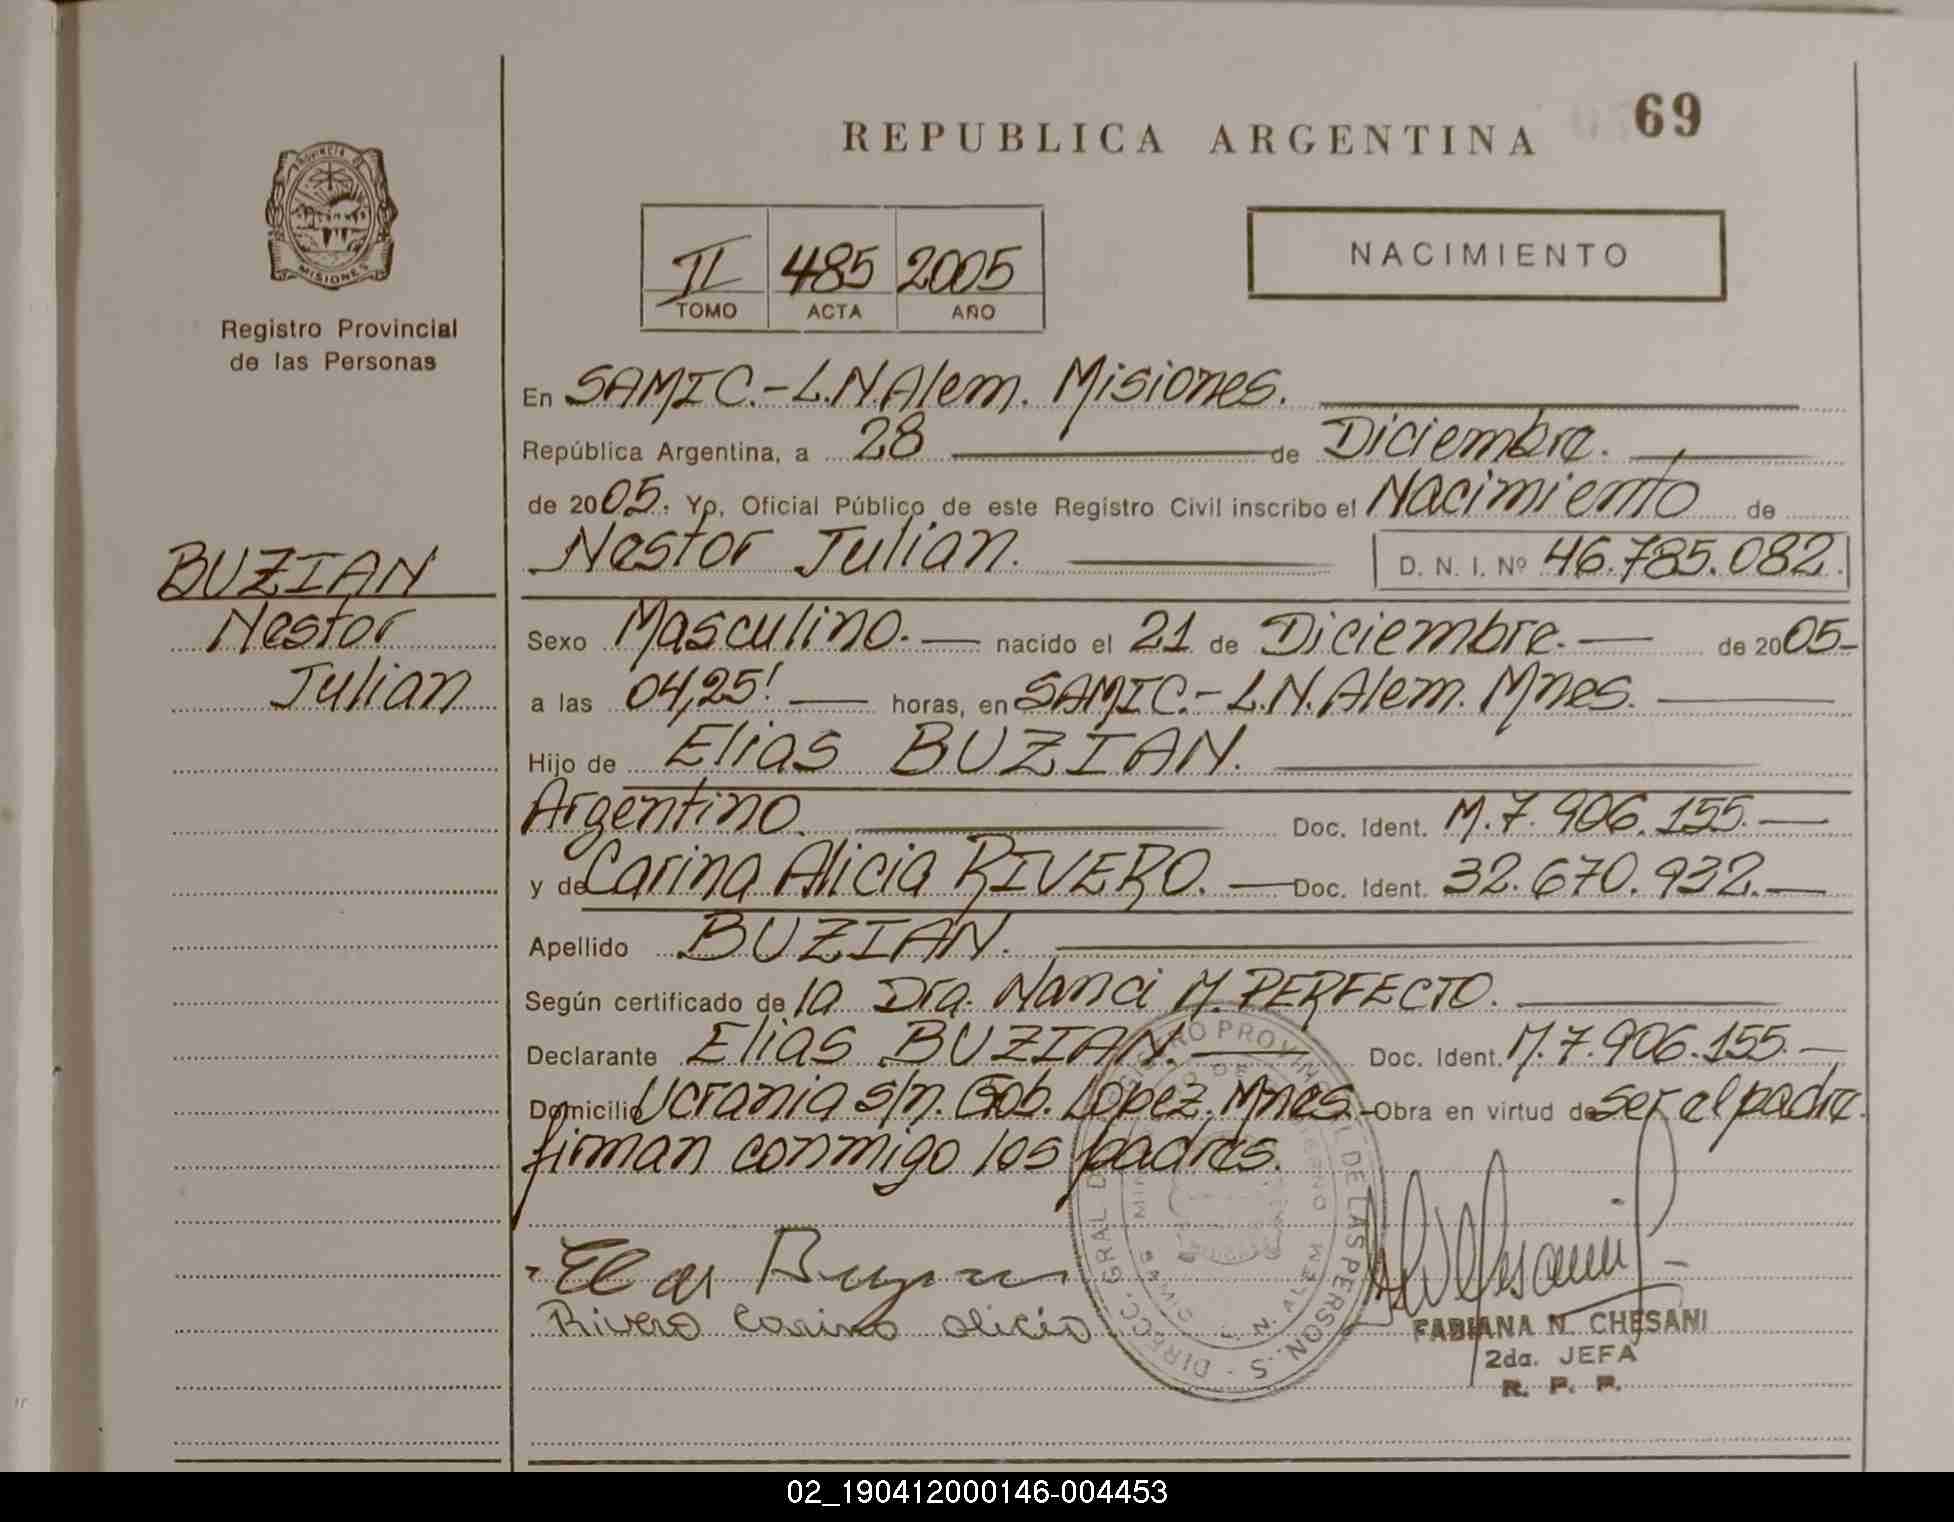 69
REPUBLICA ARGENTINA
PROVINCIA DE
MISIONES
Registro Provincial
de las Personas
II 485 2005
TOMO ACTA AÑO
NACIMIENTO
En SAMIC.-L.N.Alem. Misiones.
República Argentina, a 28 de Diciembre.
de 2005. Yo, Oficial Público de este Registro Civil inscribo el Nacimiento de
Nestor Julian. D. N. I. Nº 46.785.082.
BUZIAN
Nestor
Julian
Sexo Masculino. nacido el 21 de Diciembre. de 2005-
a las 04,25! horas, en SAMIC.-L.N.Alem. Mnes.
Hijo de Elias BUZIAN.
Argentino. Doc. Ident. M.7.906.155.
y de Carina Alicia RIVERO. Doc. Ident. 32.670.932.
Apellido BUZIAN.
Según certificado de la Dra. Nanci M. PERFECTO.
Declarante Elias BUZIAN. Doc. Ident. M.7.906.155.
Domicilio Ucrania s/n. Gob. Lopez, Mnes.- Obra en virtud de ser el padre.
firman conmigo los padres.
Rivero Carina Alicia
FABIANA N. CHESANI
2da. JEFA
R. P. P.
02_190412000146-004453